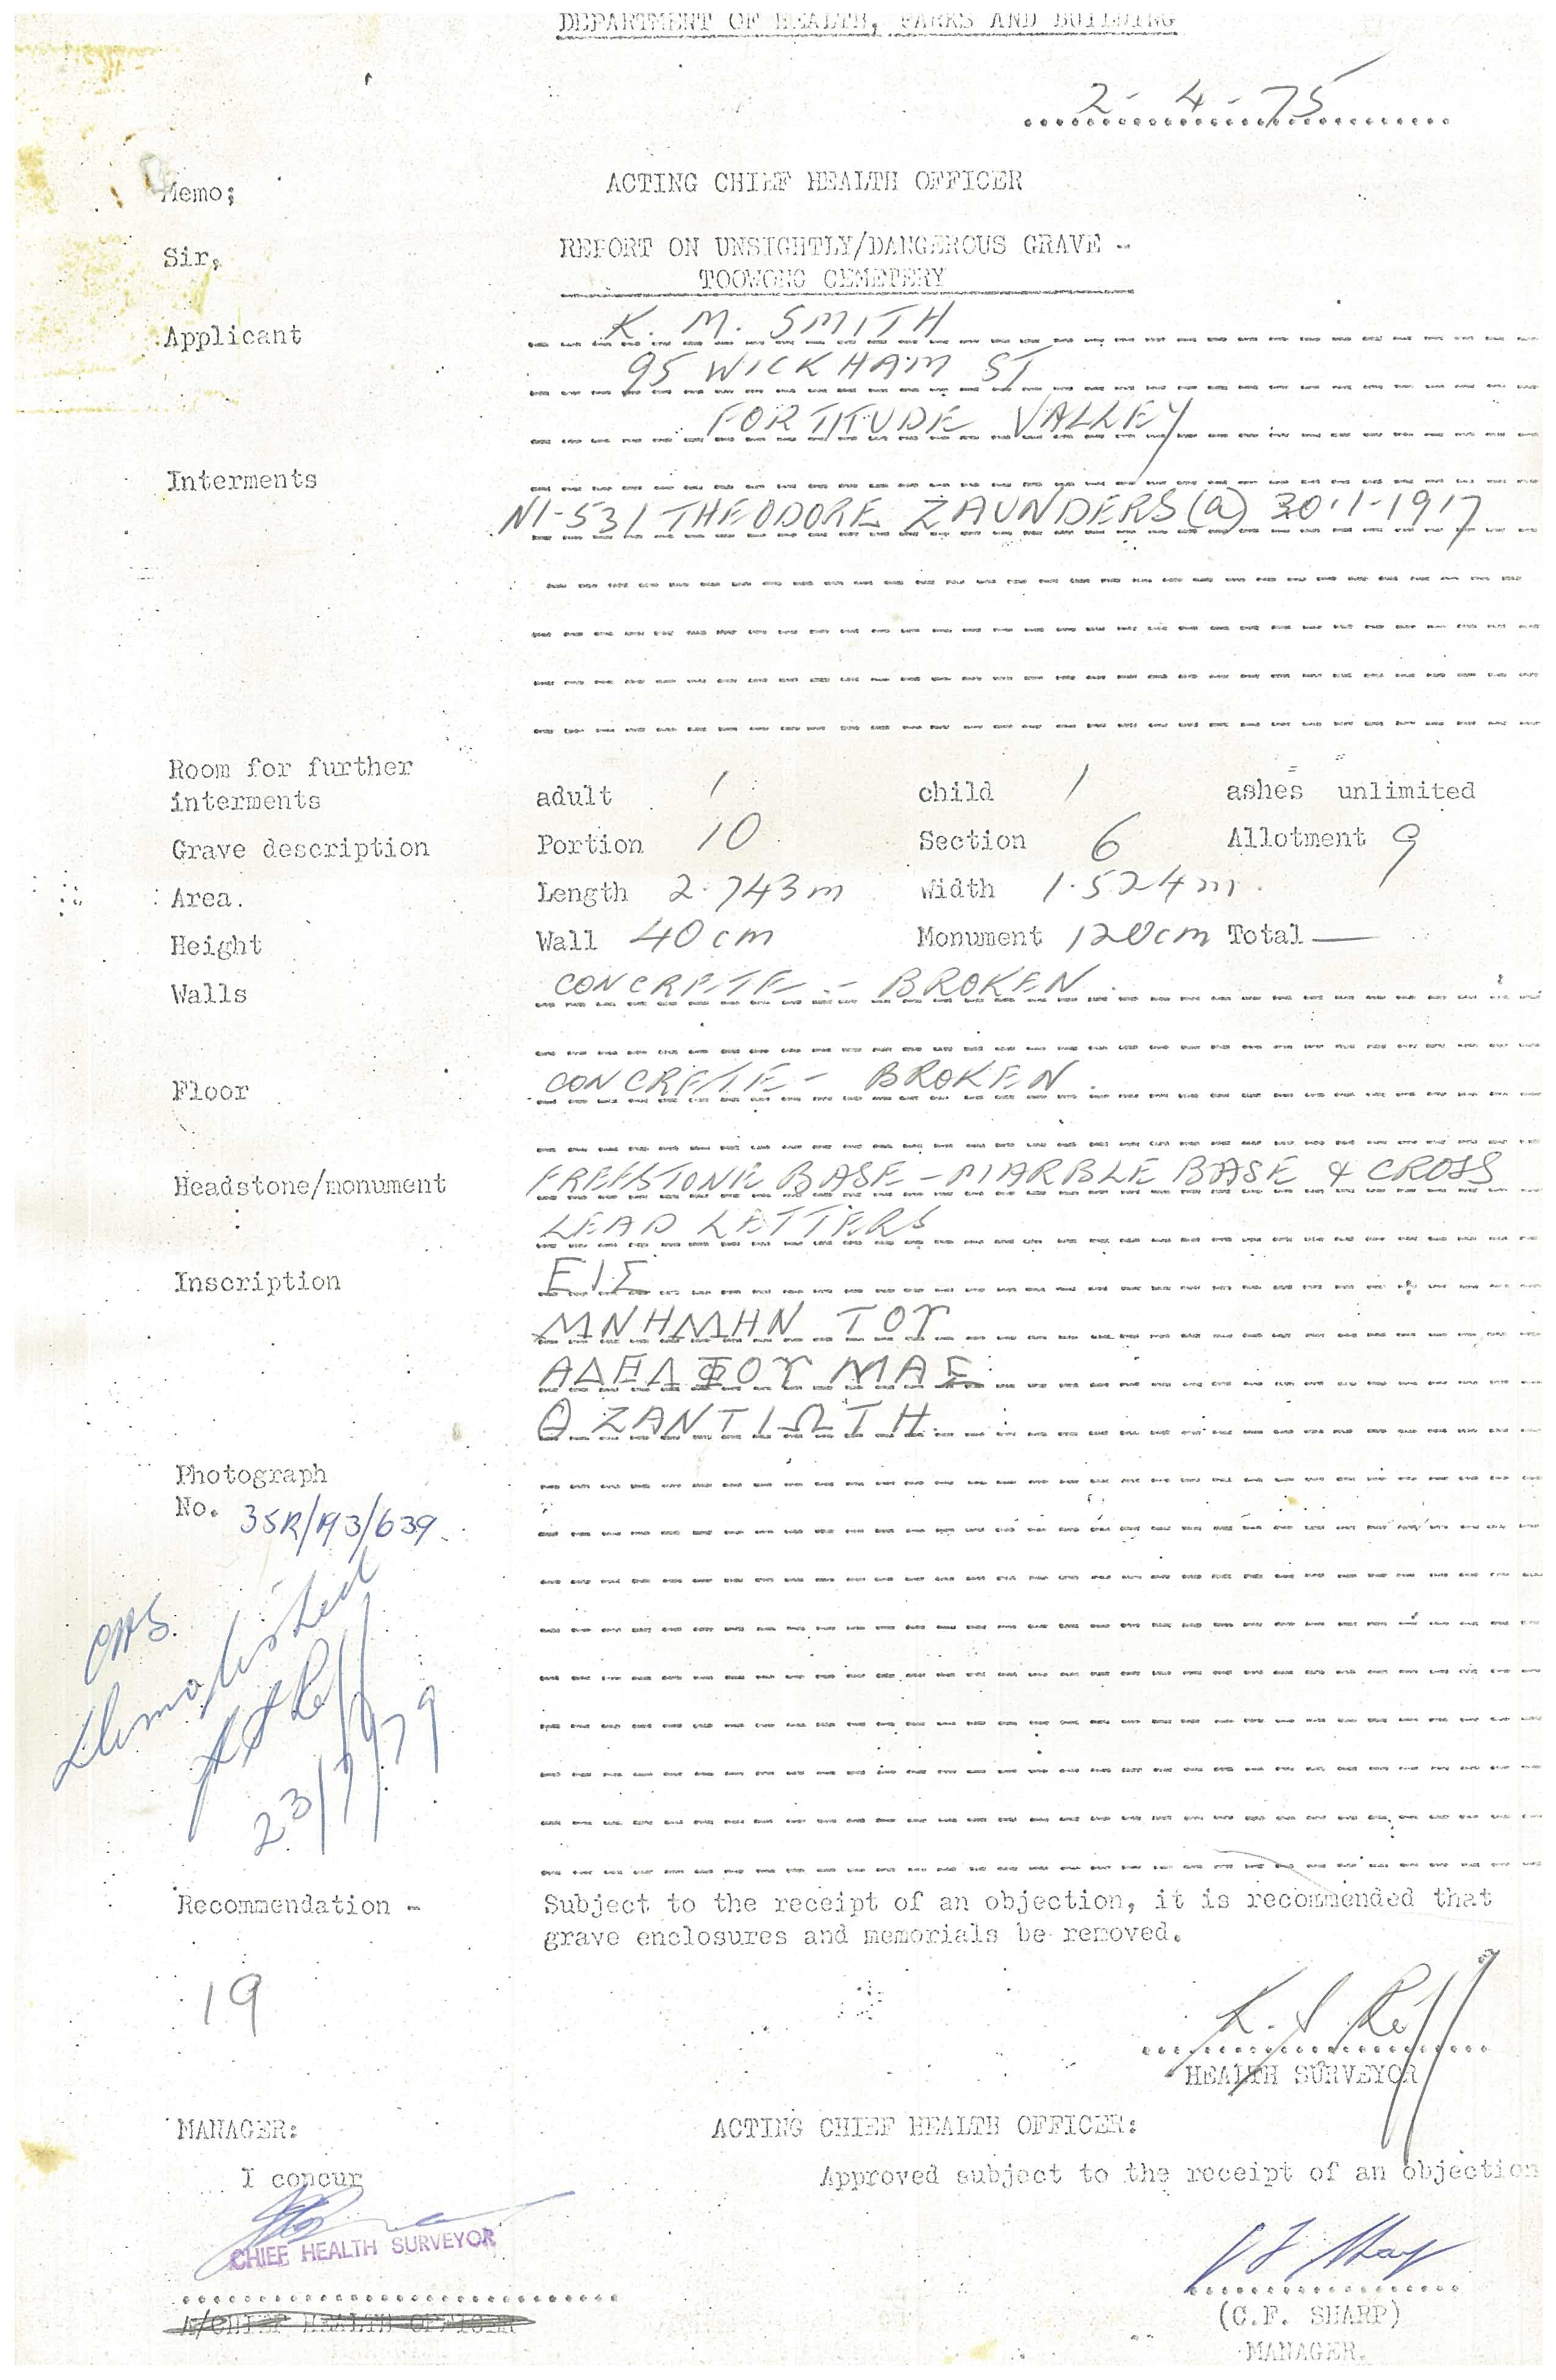 DEPARTMENT OF HEALTH, PARKS AND BUILDING
2-4-75
Memo; ACTING CHIEF HEALTH OFFICER
Sir, REPORT ON UNSIGHTLY/DANGEROUS GRAVE -
TOOWONG CEMETERY
Applicant K. M. SMITH
95 WICKHAM ST
FORTITUDE VALLEY
Interments
N1-531 THEODORE ZAUNDERS (a) 30.1-1917
Room for further
interments adult 1 child 1 ashes unlimited
Grave description Portion 10 Section 6 Allotment 9
Area. Length 2.743m Width 1.524m.
Height Wall 40cm Monument 120cm Total —
Walls CONCRETE - BROKEN.
Floor CONCRETE - BROKEN.
Headstone/monument FREESTONE BASE - MARBLE BASE & CROSS
LEAD LETTERS
Inscription ΕΙΣ
ΜΝΗΜΗΝ ΤΟΥ
ΑΔΕΛΦΟΥ ΜΑΣ
Θ ΖΑΝΤΙΩΤΗ
Photograph
No. 35R/A93/639.
CHS.
Demolished
23/7/79
Recommendation - Subject to the receipt of an objection, it is recommended that
grave enclosures and memorials be removed.
19
HEALTH SURVEYOR
MANAGER: ACTING CHIEF HEALTH OFFICER:
I concur Approved subject to the receipt of an objection
CHIEF HEALTH SURVEYOR
A/CHIEF HEALTH OFFICER
(C.F. SHARP)
MANAGER.